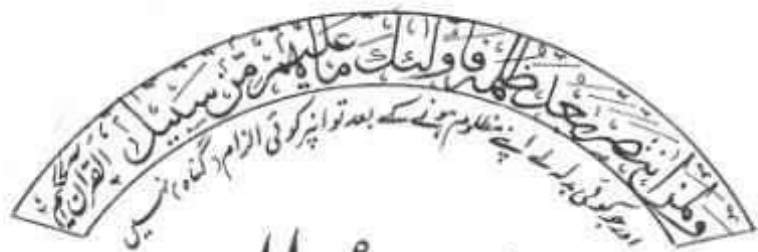 ولمن انتصر بعد ظلمہ فاولئك ما علیہم من سبیل القرآن الحکیم
اور جو کوئی بدلہ لے اپنے مظلوم ہونے کے بعد تو انپر کوئی الزام (گناہ) نہیں